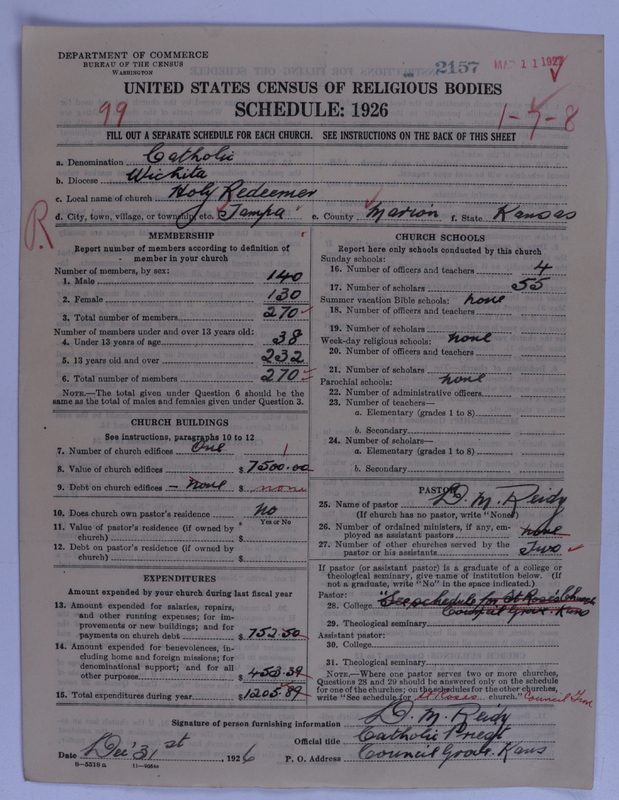 DEPARTMENT OF COMMERCE
BUREAU OF THE CENSUS
WASHINGTON
2157
MAR 11 1927
UNITED STATES CENSUS OF RELIGIOUS BODIES
99
SCHEDULE: 1926
1-7-8
FILL OUT A SEPARATE SCHEDULE FOR EACH CHURCH. SEE INSTRUCTIONS ON THE BACK OF THIS SHEET
a. Denomination Catholic
b. Diocese Wichita
c. Local name of church Holy Redeemer
d. City, town, village, or township, etc. Tampa e. County Marion f. State Kansas
R
MEMBERSHIP
Report number of members according to definition of
member in your church
Number of members, by sex:
1. Male 140
2. Female 130
3. Total number of members 270
Number of members under and over 13 years old:
4. Under 13 years of age 38
5. 13 years old and over 232
6. Total number of members 270
NOTE.—The total given under Question 6 should be
same as the total of males and females given under Question 3.
CHURCH BUILDINGS
See instructions, paragraphs 10 to 12
7. Number of church edifices One 1
8. Value of church edifices $ 7500.00
9. Debt on church edifices – none $ none
10. Does church own pastor's residence No
Yes or No
11. Value of pastor's residence (if owned by
church) $
12. Debt on pastor's residence (if owned by
church) $
EXPENDITURES
Amount expended by your church during last fiscal year
13. Amount expended for salaries, repairs,
and other running expenses; for im-
provements or new buildings; and for
payments on church debt $ 752.50
14. Amount expended for benevolences, in-
cluding home and foreign missions; for
denominational support; and for all
other purposes $ 453.39
15. Total expenditures during year $ 1205.89
CHURCH SCHOOLS
Report here only schools conducted by this church
Sunday schools:
16. Number of officers and teachers 4
17. Number of scholars 55
Summer vacation Bible schools: none
18. Number of officers and teachers
19. Number of scholars
Week-day religious schools: none
20. Number of officers and teachers
21. Number of scholars
Parochial schools: none
22. Number of administrative officers
23. Number of teachers—
a. Elementary (grades 1 to 8)
b. Secondary
24. Number of scholars—
a. Elementary (grades 1 to 8)
b. Secondary
PASTOR
25. Name of pastor D. M. Reidy
(If church has no pastor, write "None")
26. Number of ordained ministers, if any, em-
ployed as assistant pastors none
27. Number of other churches served by the
pastor or his assistants Two
If pastor (or assistant pastor) is a graduate of a college or
theological seminary, give name of institution below. (If
not a graduate, write "No" in the space indicated.)
Pastor: "See schedule for St Rose's Church
28. College Council Grove. Kans
29. Theological seminary
Assistant pastor:
30. College
31. Theological seminary
NOTE.—Where one pastor serves two or more churches,
Questions 28 and 29 should be answered only on the schedule
for one of the churches; on the schedules for the other churches,
write "See schedule for St Roses church." Council Grove
Signature of person furnishing information D. M. Reidy
Official title Catholic Priest
Date Dec' 31st, 1926 P. O. Address Council Grove. Kans
8-5518 a